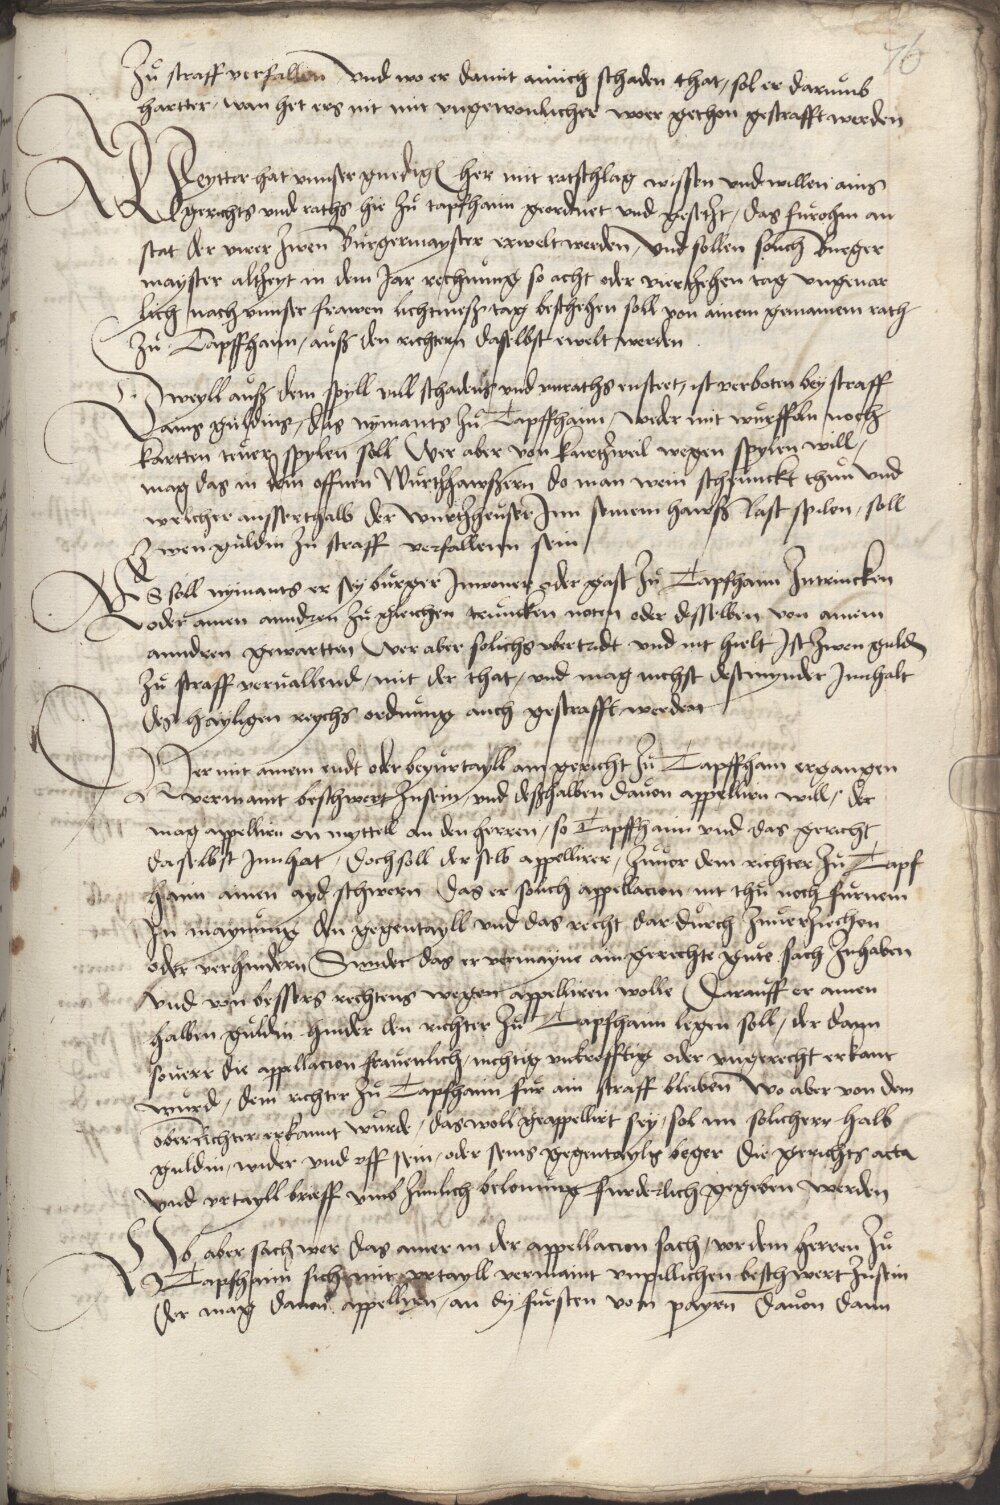 76
Zů straff verfallen vnd wo er damit ainich schaden that, sol er darumb
hartter, wan het ers nit mit vngewonlicher wer gethon gestrafft werden
Weytter hat vnnser gnedig her mit ratschlag wissen vnd willen ains
gerichts vnd raths hie zů tapfhaim geordnet vnd gesetzt, das furohin an
stat der vierer zwen Burgermayster erwelt werden, vnd sollen sölich Burger
mayster altzeyt in dem Jar rechnung so acht oder vierzehen tag vngeuar
lich nach vnnser frawen liechtmeß tag beschehen soll von ainem gemainem rath
zů Tapffhaim, auß den richtern daselbst erwelt werden.
Dweyll auß dem spyll vill schadens vnd vnraths enstett, ist verboten bey straff
ains guldins, das nymants zů Tapffhaim, weder mit wurfflen noch
kartten teuer spylen soll Wer aber von kurtzweil wegen spylen will,
mag das in dem offnen Würtzhawßern do man wein schennckt thun vnd
welcher ausserthalb der wurtzheuser Inn seinem hawß last spilen, soll
Zwen guldin zů straff verfallenn sein
Es soll nymants er sey burger Inwoner oder gast zů Tapfhaim Zutrincken
oder ainen anndren zů gleichen truncken noten oder desselben von ainem
anndren gewartten Wer aber solichs vbertridt vnd nit hielt Ist Zwen guld
zů straff veruallend, mit der that, vnd mag nichst destmynder Innhalt
des hayligen reychs ordnung auch gestrafft werden
Wer mit ainem endt oder beyurtayll am gericht zů Tapffham ergangen
vermaint beschwert zusein, vnd deßhalben dauon appelliern will, der
mag appellirn on myttell an den herren, so Tapffhaim vnd das gericht
daselbst Innhat, doch soll der selb appellirer, zuuer dem richter zů Tapf
haim ainen ayd schwern das er sölich appellacion nit thů noch furnem
In maynung den gegentayll vnd das recht dardurch zuuerziechen
oder verhindern Sunder das er vermayne ain gerechte gute sach zuhaben
vnd von bessers rechtens wegen appelliren wolle Darauff er ainen
halben guldin hinder den richter zů Tapfhaim legen soll, der dann
souerr die appellacion freuenlich, nichtig vnkrefftig oder vngerecht erkant
wurd, dem richter zů Tapfhaim fur ain straff bleiben Wo aber von dem
obern richter erkannt wurde, das woll geappellirt sey, sol im solicherr halb
guldin, wider vnd vff sein, oder seins gegentayls beger die gerichts acta
vnd vrtayll brieff vmb zimlich belonung furderlich gegeben werden
Ob aber sach wer das ainer in der appellacion sach, vor dem herren zů
Tapfhaim sich mit vrtayll vermaint vnpillichen beschwert zusein
der mag dauon appellirn, an dy fursten vom payrn dauon dann